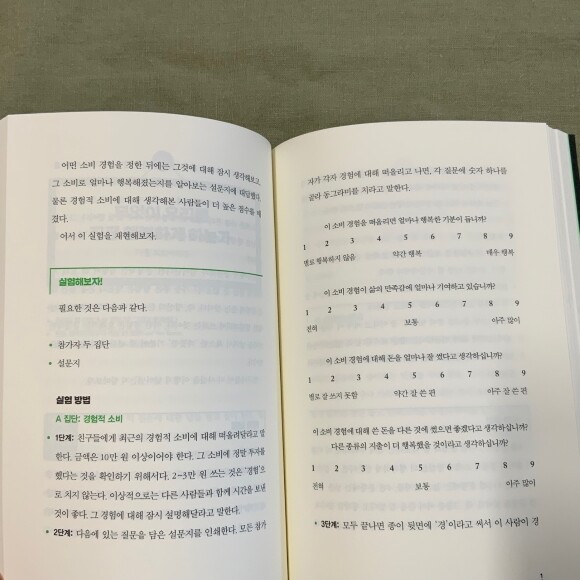 어떤 소비 경험을 정한 뒤에는 그것에 대해 잠시 생각해보고,
그 소비로 얼마나 행복해졌는지를 알아보는 설문지에 대답했다.
물론 경험적 소비에 대해 생각해본 사람들이 더 높은 점수를 매
겼다.
어서 이 실험을 재현해보자.
실험해보자!
필요한 것은 다음과 같다.
• 참가자 두 집단
• 설문지
실험 방법
A 집단: 경험적 소비
• 1단계: 친구들에게 최근의 경험적 소비에 대해 떠올려달라고 말
한다. 금액은 10만 원 이상이어야 한다. 그 소비에 정말 투자를
했다는 것을 확인하기 위해서다. 2~3만 원 쓰는 것은 '경험'으
로 치지 않는다. 이상적으로는 다른 사람들과 함께 시간을 보낸
것이 좋다. 그 경험에 대해 잠시 설명해달라고 말한다.
• 2단계: 다음에 있는 질문을 담은 설문지를 인쇄한다. 모든 참가
자가 각자 경험에 대해 떠올리고 나면, 각 질문에 숫자 하나를
골라 동그라미를 치라고 말한다.
이 소비 경험을 떠올리면 얼마나 행복한 기분이 듭니까?
1 2 3 4 5 6 7 8 9
별로 행복하지 않음 약간 행복 매우 행복
이 소비 경험이 삶의 만족감에 얼마나 기여하고 있습니까?
1 2 3 4 5 6 7 8 9
전혀 보통 아주 많이
이 소비 경험에 대해 돈을 얼마나 잘 썼다고 생각하십니까?
1 2 3 4 5 6 7 8 9
별로 잘 쓰지 못함 약간 잘 쓴 편 아주 잘 쓴 편
이 소비 경험에 대해 쓴 돈을 다른 것에 썼으면 좋겠다고 생각하십니까?
다른 종류의 지출이 더 행복했을 것이라고 생각하십니까?
1 2 3 4 5 6 7 8 9
전혀 보통 아주 많이
• 3단계: 모두 끝나면 종이 뒷면에 '경'이라고 써서 이 사람이 경